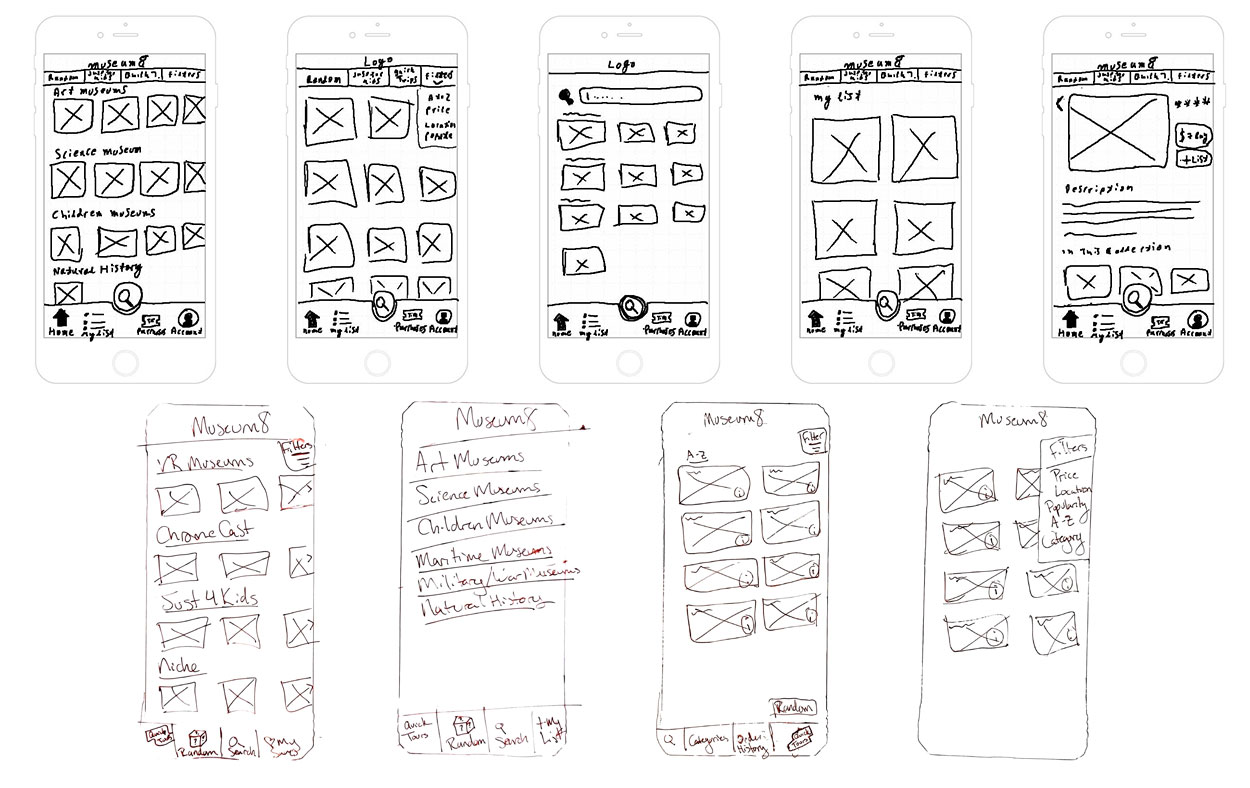 museum8
Random
Filters
Art museums
Science museum
Children museums
Natural History
Home
my list
Account
Logo
Random
Filters
A to Z
Price
Location
Home
my list
Purchases
Account
Logo
home
my list
Purchases
Account
museum8
Random
Filters
my list
home
my list
Purchases
Account
museum8
Random
Filters
****
$ 7 Buy
+ List
Description
in this collection
Home
my list
Account
Museum8
Filters
VR Museums
ChromeCast
Just 4 Kids
Niche
Quick
Tours
Random
Search
My
Museum8
Art Museums
Science Museums
Children Museums
Maritime Museums
Military/War Museums
Natural History
Quick
Tours
Random
Search
+My
List
Museum8
Filter
A-Z
Random
Categories
Order
History
Quick
Tours
Museum8
Filters
Price
Location
Popularity
A-Z
Category